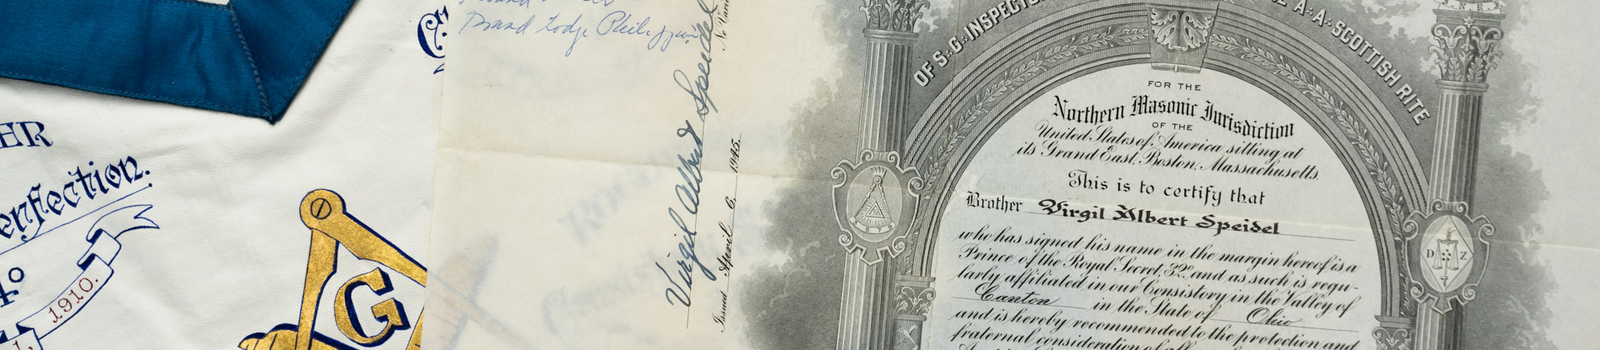 HR
erfection.
4°
1910.
G
Grand Lodge Philippin
Virgil Albert Speidel
Issued April 6 1945.
OF S∴G∴INSPECTO
A∴A∴SCOTTISH RITE
FOR THE
Northern Masonic Jurisdiction
OF THE
United States of America sitting at
its Grand East, Boston, Massachusetts.
This is to certify that
Brother Virgil Albert Speidel
who has signed his name in the margin hereof is a
Prince of the Royal Secret, 32° and as such is regu-
larly affiliated in our Consistory in the Valley of
Canton in the State of Ohio
and is hereby recommended to the protection and
fraternal consideration of all
D Z